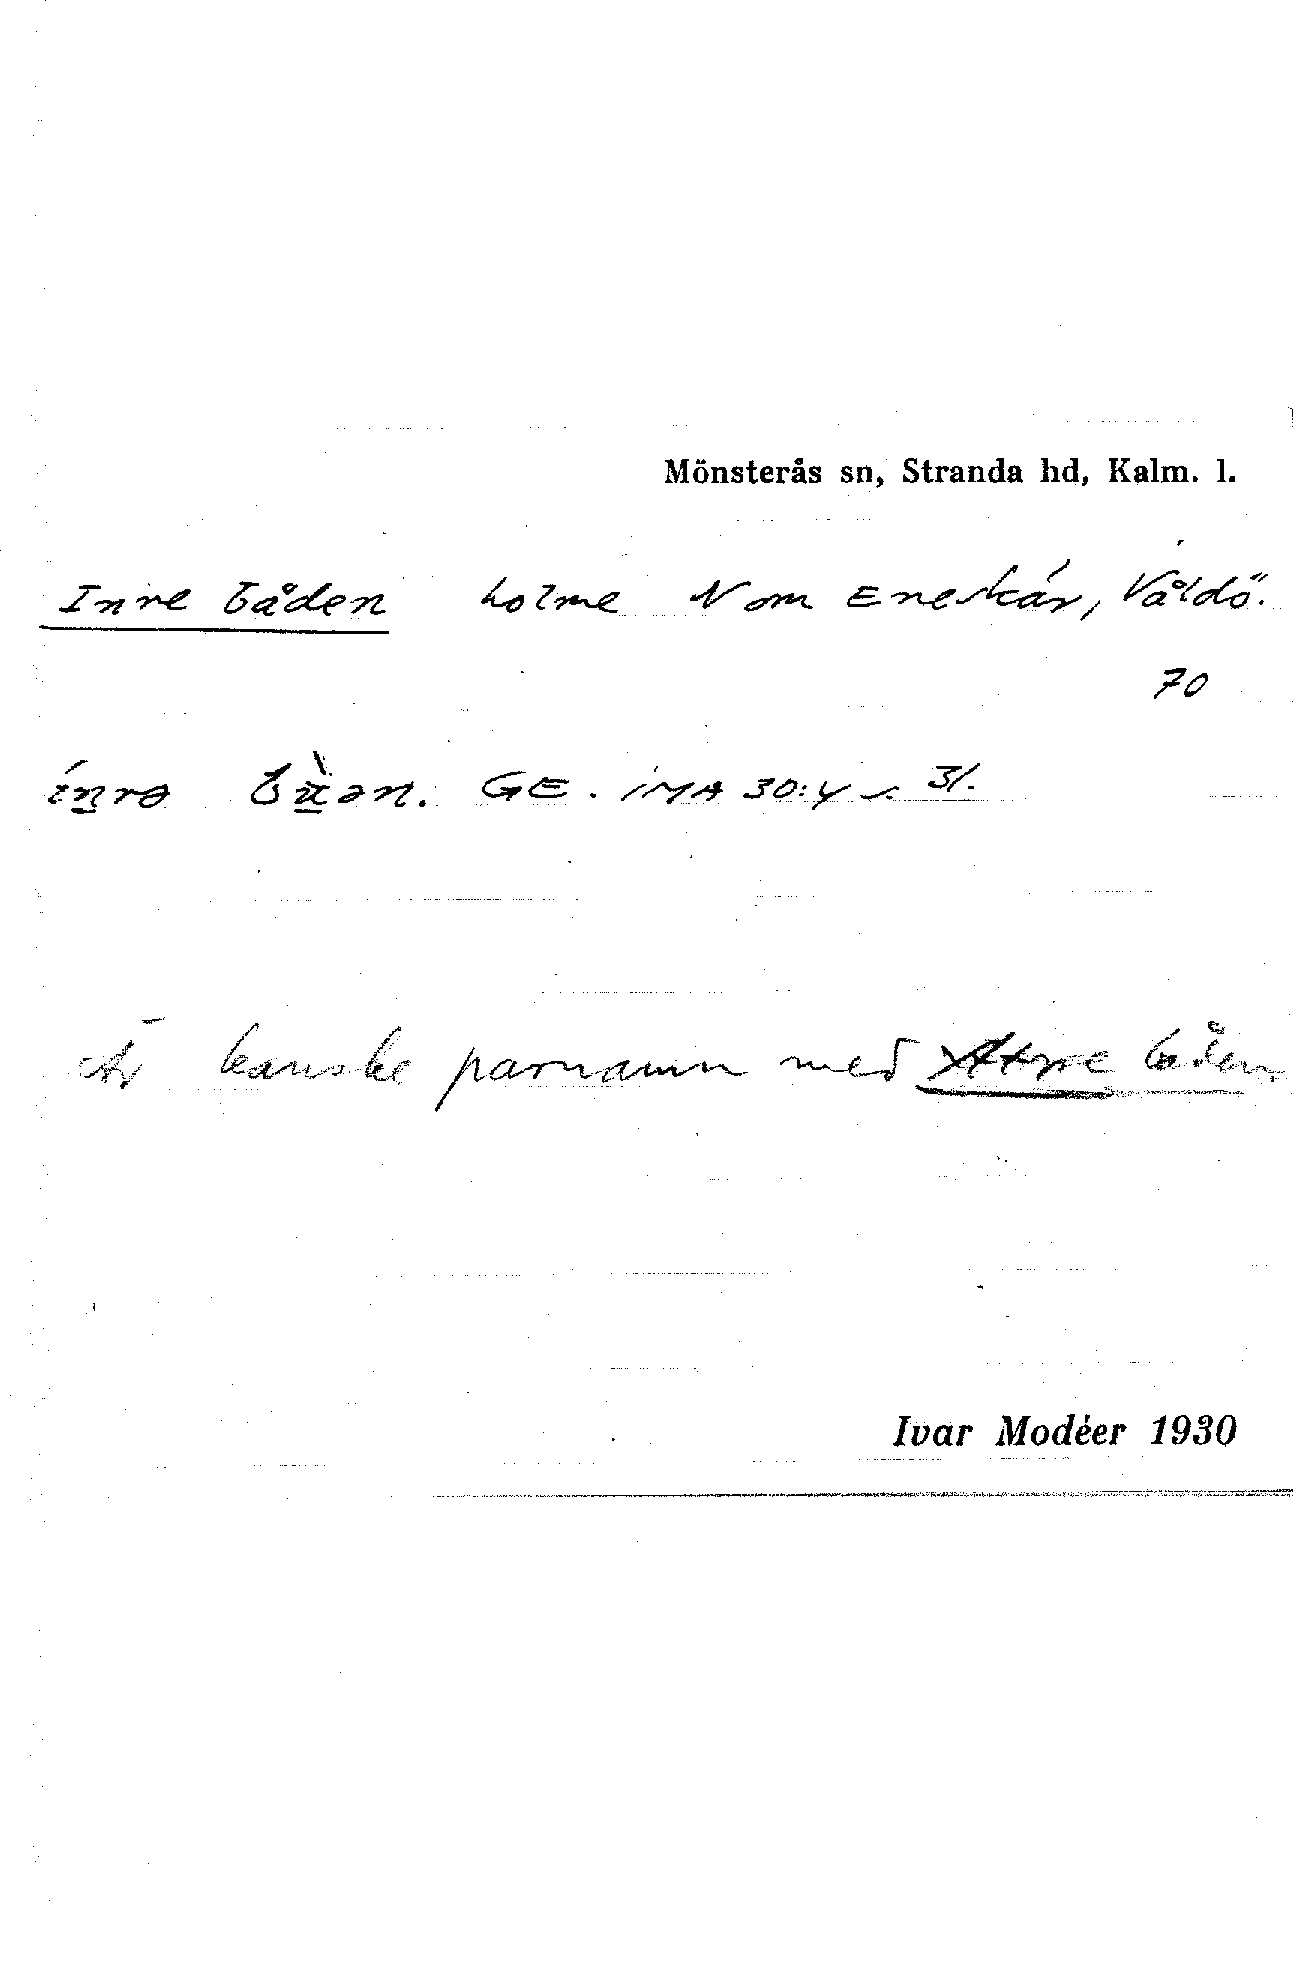 Mönsterås sn, Stranda hd, Kalm. l.
Inre båden holme N om Eneskär, Våldö.
70
GE. IMA 30:4 s. 31.
Är kanske parnamn med Yttre båden
Ivar Modéer 1930